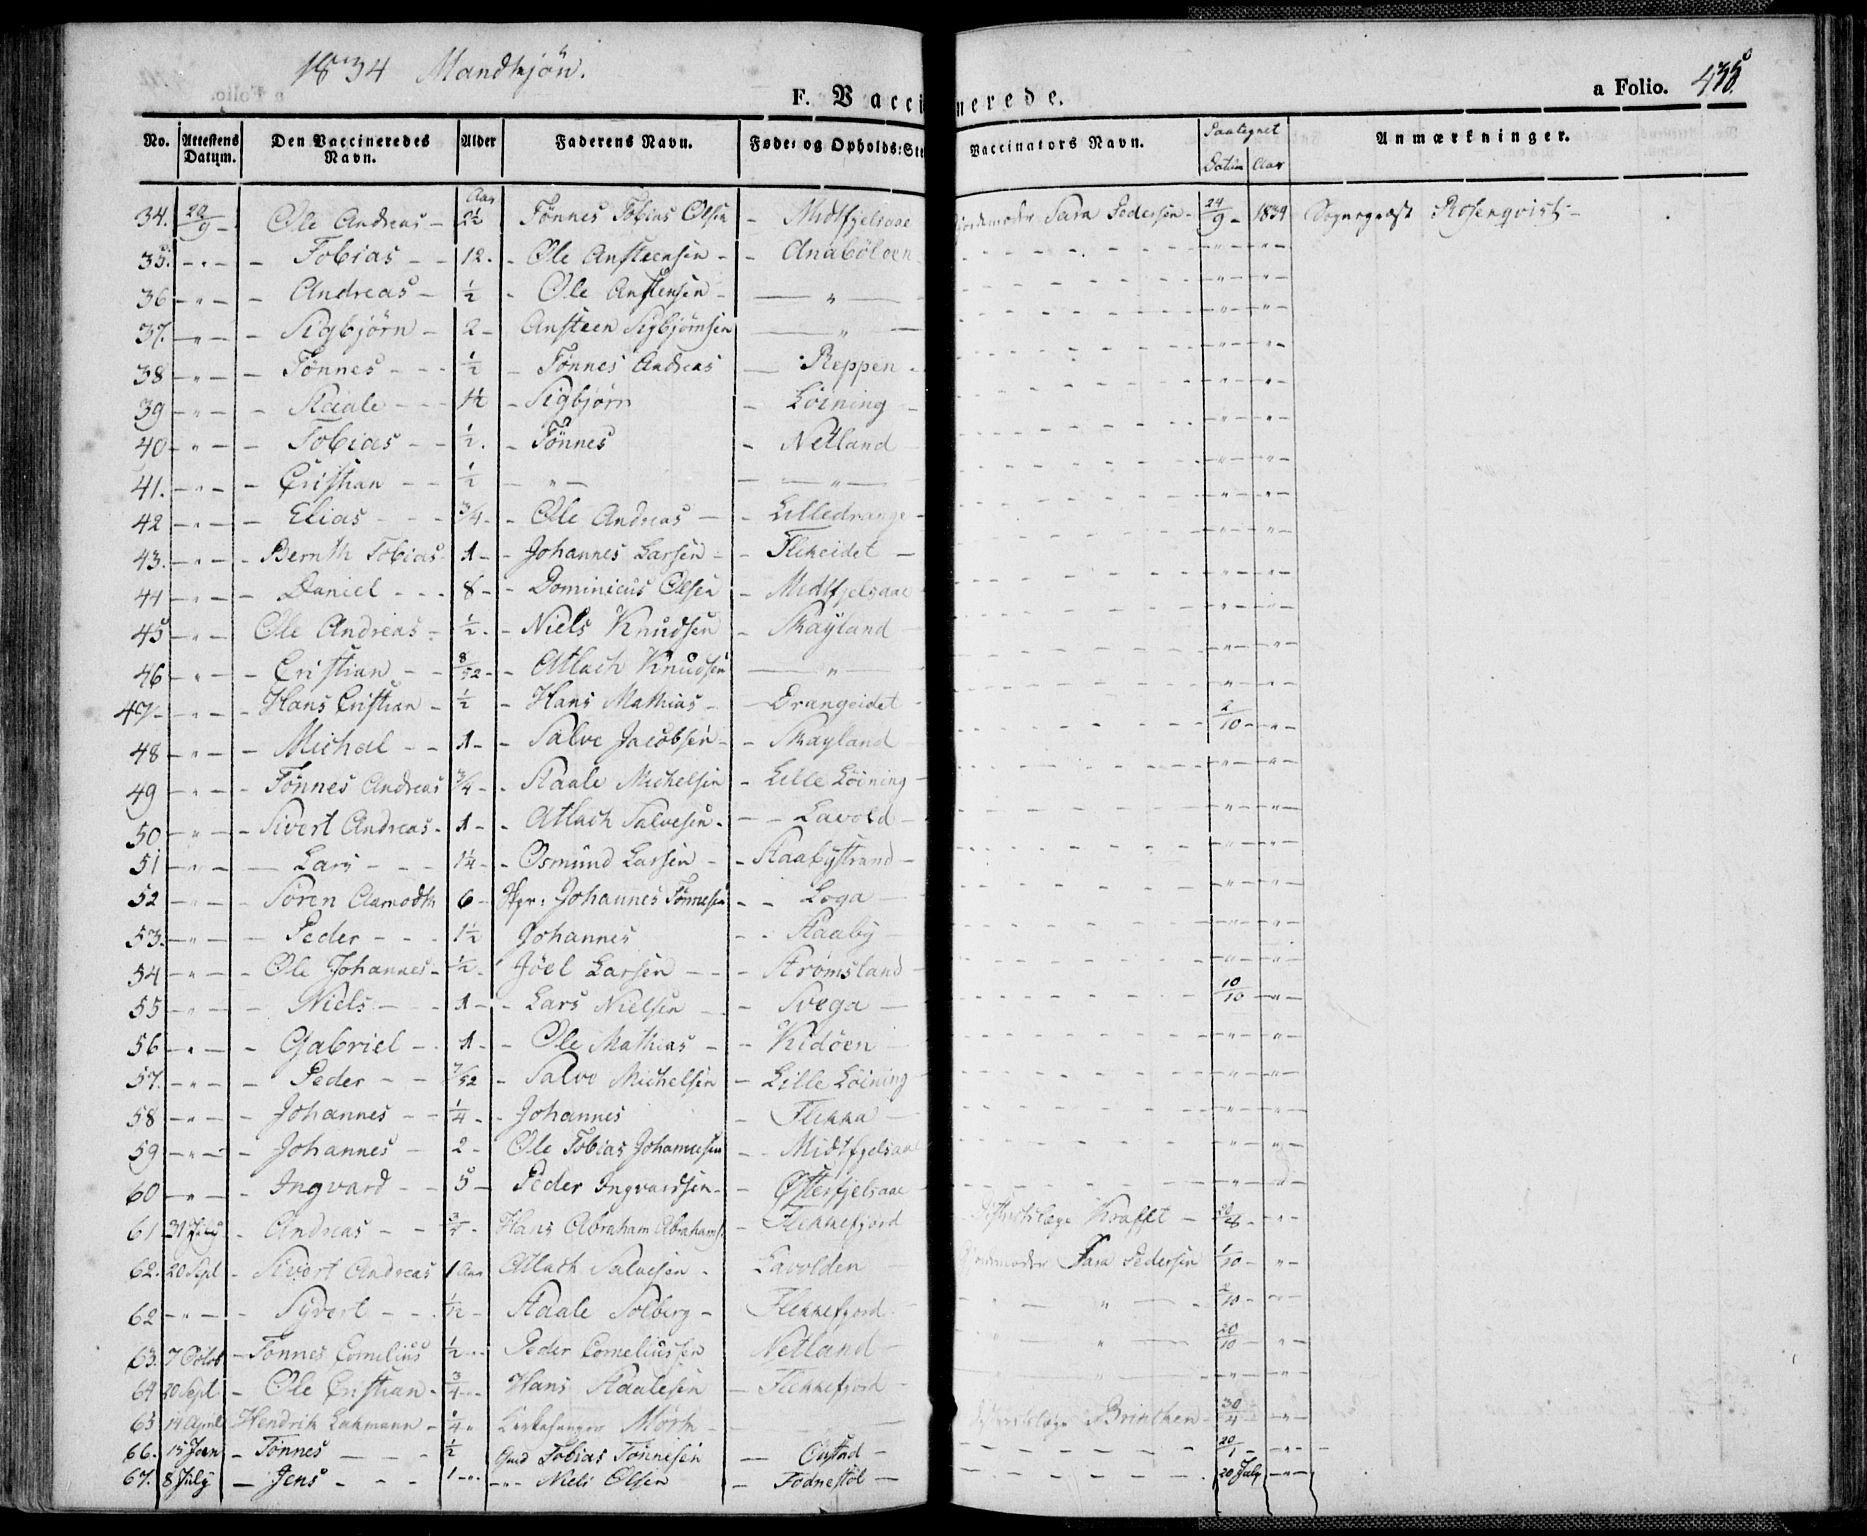 1834 Mandkjön.
F. Vaccinerede.
a Folio. 435
No. | Attestens Datum. | Den Vaccineredes Navn. | Alder | Faderens Navn. | Føde= og Opholds=Ste | Vaccinators Navn. | Paategnet Datum | Aar | Anmærkninger.
34. 20/9 - Ole Andreas - Aar 2½ Tønnes Tobias Olsen - Midtfjelsaae - Jordemoder Sara Pedersen - 24/9 - 1834 Sogneprest Rosenqvist -
35. - " - Tobias - 12 - Ole Ansteensen - Anaböloen - " - " -
36 - " - Andreas - ½ - Ole Anstensen - " - " - " -
37. - " - Sigbjørn - 2 - Ansteen Sigbjørnsen - " - " - " -
38 - " - Tønnes - ½ - Tønnes Andreas - Reppen - " - " -
39 - " - Staale - 1½ - Sigbjørn - Löining - " - " -
40 - " - Tobias - ½ - Tønnes - Netland - " - " -
41. - " - Cristian - ½ - " - " - " - " -
42 - " - Elias - 3/4 - Ole Andreas - Lilledrange - " - " -
43. - " - Bernth Tobias - 1 - Johannes Larsen - Flikeidet - " - " -
44 - " - Daniel - 8 - Dominicus Olsen - Midtfjelsaae - " - " -
45 - " - Ole Andreas - ½ - Niels Knudsen - Skayland - " - " -
46 - " - Cristian - 8/52 - Atlach Knudsen - " - " - " -
47 - " - Hans Cristian - ½ - Hans Mathias - Drangeidet - " - " -
48 - " - Michal - 1 - Salve Jacobsen - Skayland - 2/10 - " -
49 - " - Tönnes Andreas 3/4 - Staale Michelsen - Lille Löining - " - " -
50 - " - Sivert Andreas - 1 - Atlach Salvesen - Lavold - " - " -
51 - " - Lars - 1¼ - Osmund Larsen - Staabystrand - " - " -
52 - " - Sören Aamodth 6 - Skpr: Johannes Tönnesen - Loga - " - " -
53. - " - Peder - 1½ Johannes - Staaby - " - " -
54 - " - Ole Johannes - ½ - Joel Larsen - Strömsland - " - " -
55 - " - Niels - 1 - Lars Nielsen - Svega - 10/10 - " -
56 - " - Gabriel - 1 - Ole Mathias - Kidöen - " - " -
57. - " - Peder - 7/52 - Salve Michelsen - Lille Löining - " - " -
58 - " - Johannes - ¼ - Johannes - Flikka - " - " -
59 - " - Johannes - 2 - Ole Tobias Johannesen - Midtfjelsaae - " - " -
60 - " - Ingvard - 5 - Peder Ingvardsen - Østerfjelsaae - " - " -
61 31 July - Andreas - 3/4 - Hans Abraham Abrahams. - Flekkefjord - Districtslæge Krafft - 20/8 - " -
62. 20 Sept - Sivert Andreas 1 Aar Atlach Salvesen - Lavolden - Jordemoder Sara Pedersen 1/10 - " -
62 - " - Syvert - ½ - Staale Solberg - Flekkefjord - " - 2/10 - " -
63. 7 Octob - Tönnes Cornelius ½ - Peder Corneliussen - Netland - " - 20/10 - " -
64 20 Sept - Ole Cristian - 3/4 - Hans Staalesen - Flekkefjord - " - " - " -
65 14 April - Hendrik Lahmann - ¼ - Kirkesanger Mörch - Districtslæge Brinchen - 30/4 - " -
66. 15 Jan - Tönnes - ½ Gmd Tobias Tönnesen - 20/1 - " -
67. 8 July - Jens - 1 - " - Niels Olsen - Fodnestöl - 20 July - " -